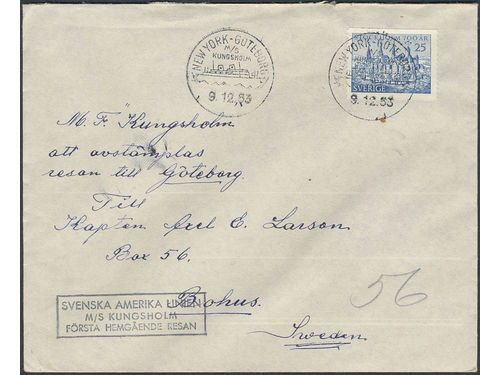 NEW YORK - GÖTEBORG
M/S
KUNGSHOLM
9.12.53
STOCKHOLM 700 ÅR
25
SVERIGE
NEW YORK - GÖTEBORG
9.12.53
M. F. "Kungsholm
att avstämplas
resan till Göteborg.
Till
Kapten Axel E. Larson
Box 56.
56
Bohus.
Sweden.
SVENSKA AMERIKA LINIEN
M/S KUNGSHOLM
FÖRSTA HEMGÅENDE RESAN